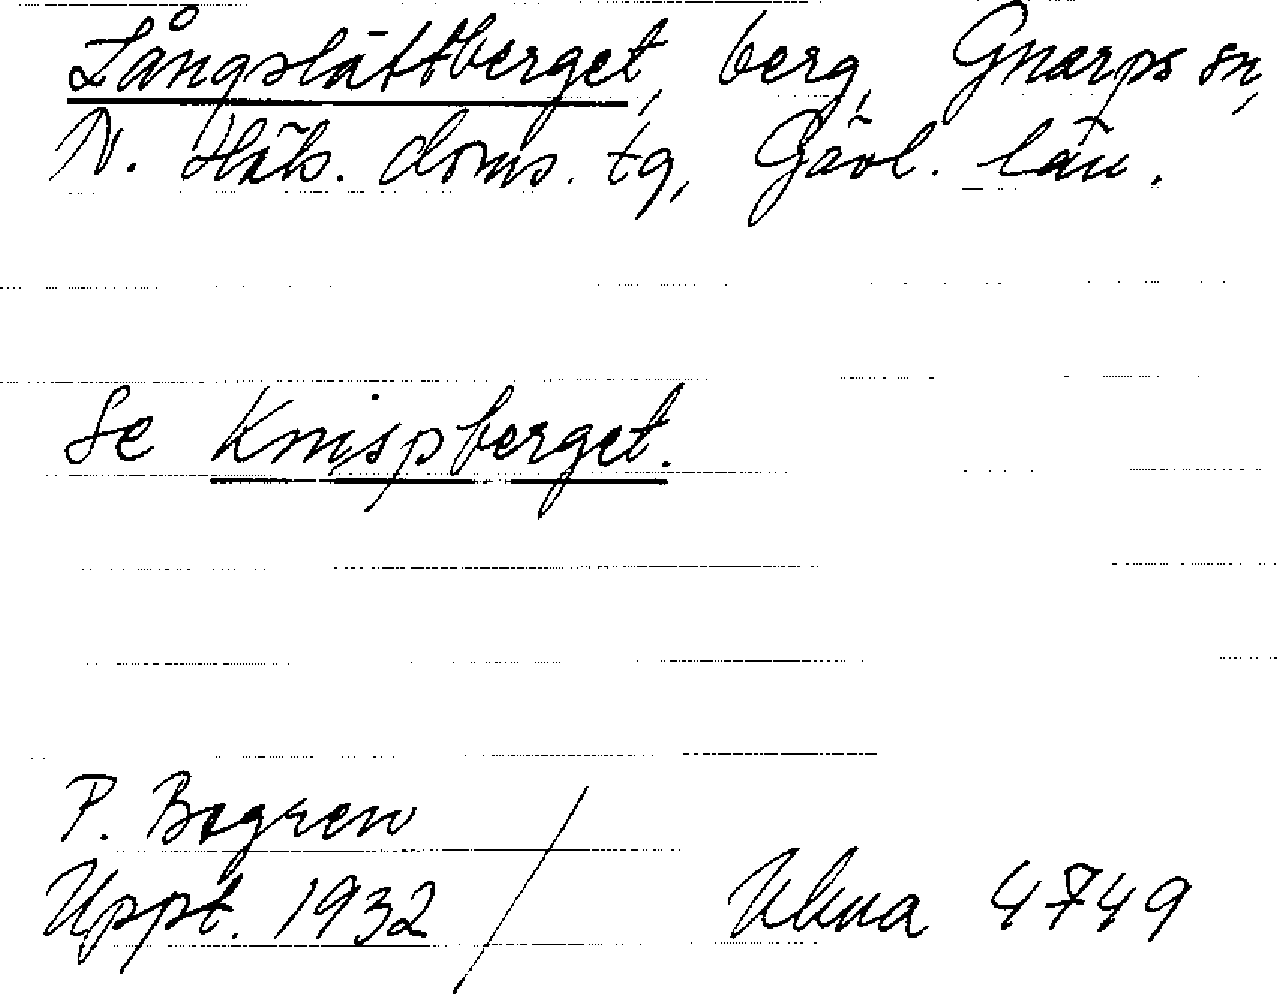 Långslättberget, berg, Gnarps sn,
N. Häls. doms. tg, Gävl. län.
Se Knispberget.
P. Bogren
Uppt. 1932 / Ukna 4749